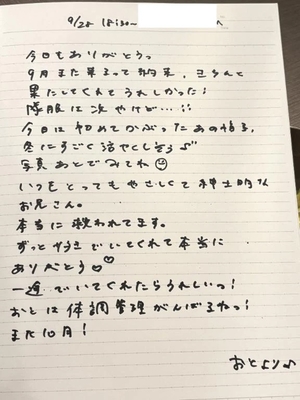 9/28 18:30~
今日もありがとうっ
9月また来るって約束、きちんと
果たしてくれてうれしかった!
隊服は次やけど…!!
今日は初めてかぶったあの帽子、
冬にすごく活やくしそう♪
写真あとでみてね
いつもとってもやさしくて紳士的な
お兄さん。
本当に救われてます。
ずっと好きでいてくれて本当に
ありがとう♡♡
一途でいてくれたらうれしいっ!
おとは体調管理がんばるねっ!
また10月!
おとより♪